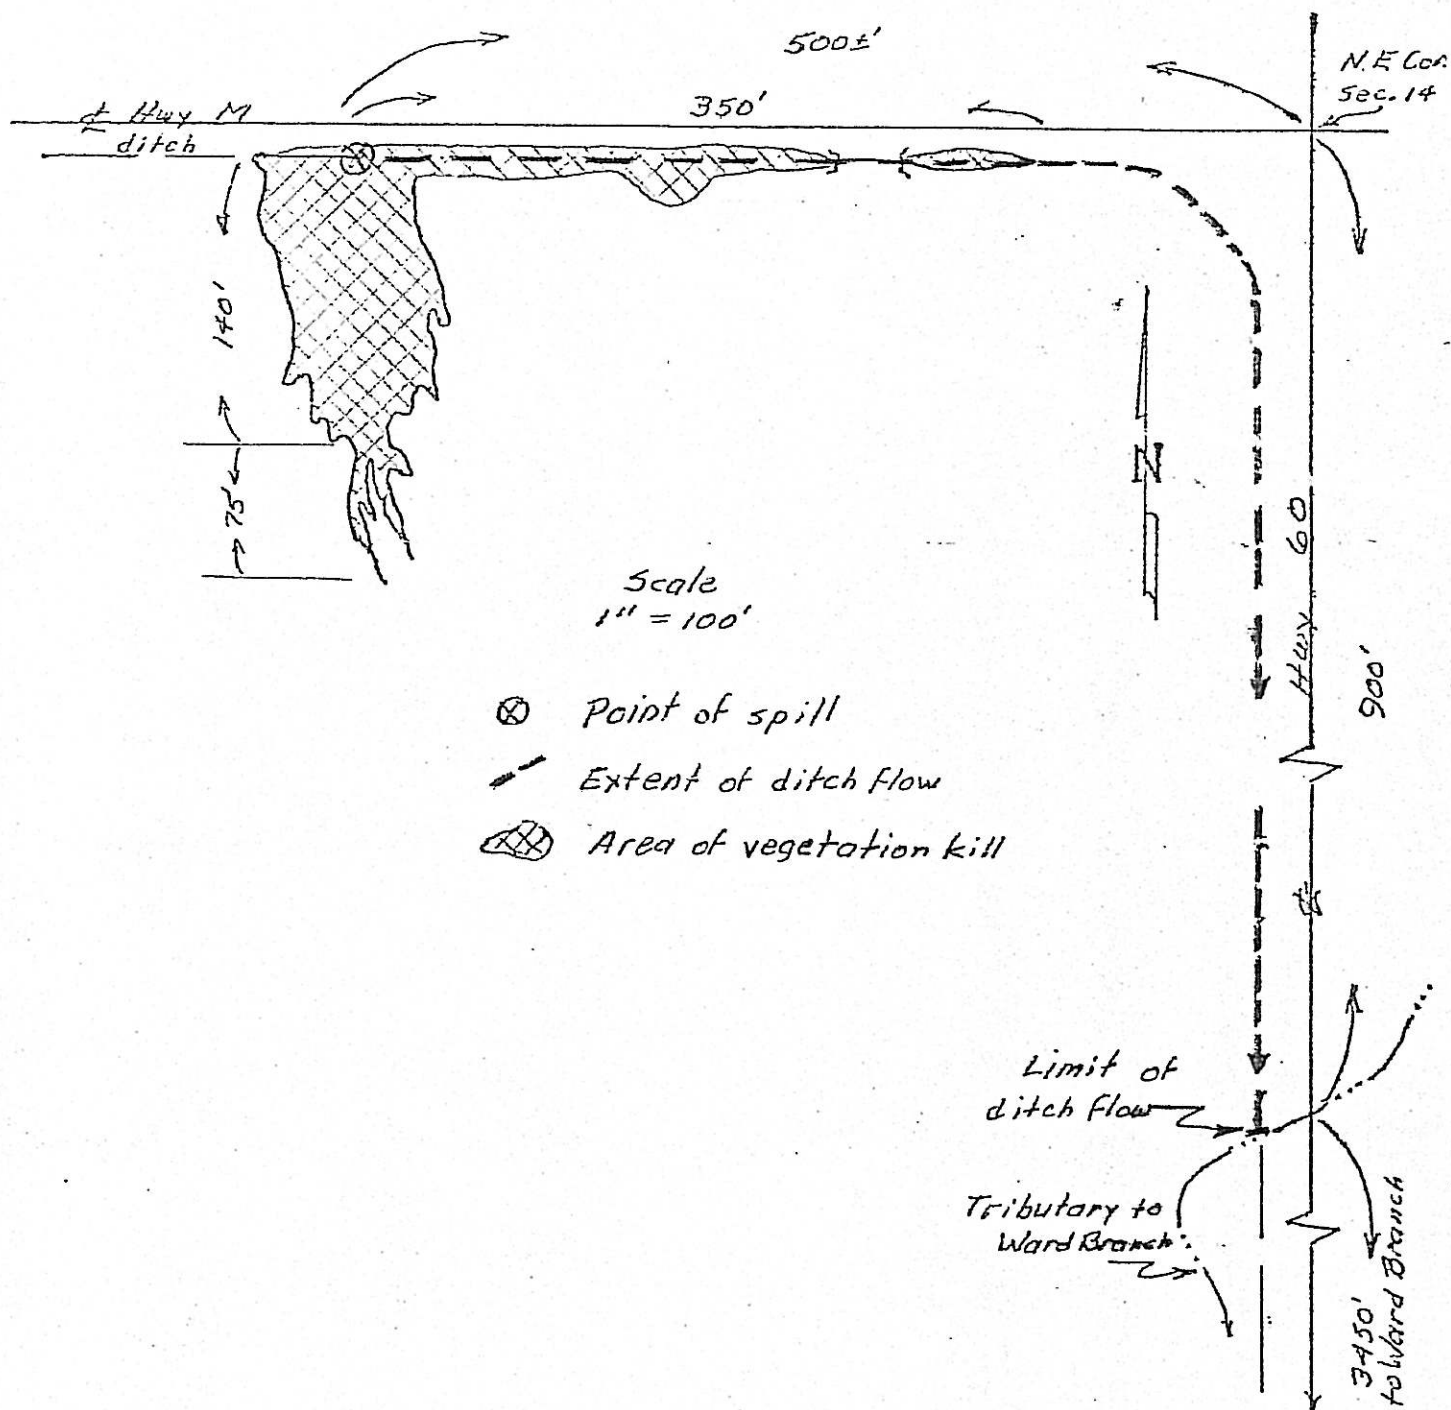 500±'
N.E Cor.
Sec. 14
350'
℄ Hwy M
ditch
140'
75'
N
Hwy 60
900'
Scale
1" = 100'
Point of spill
Extent of ditch flow
Area of vegetation kill
℄
Limit of
ditch flow
Tributary to
Ward Branch
3450'
to Ward Branch